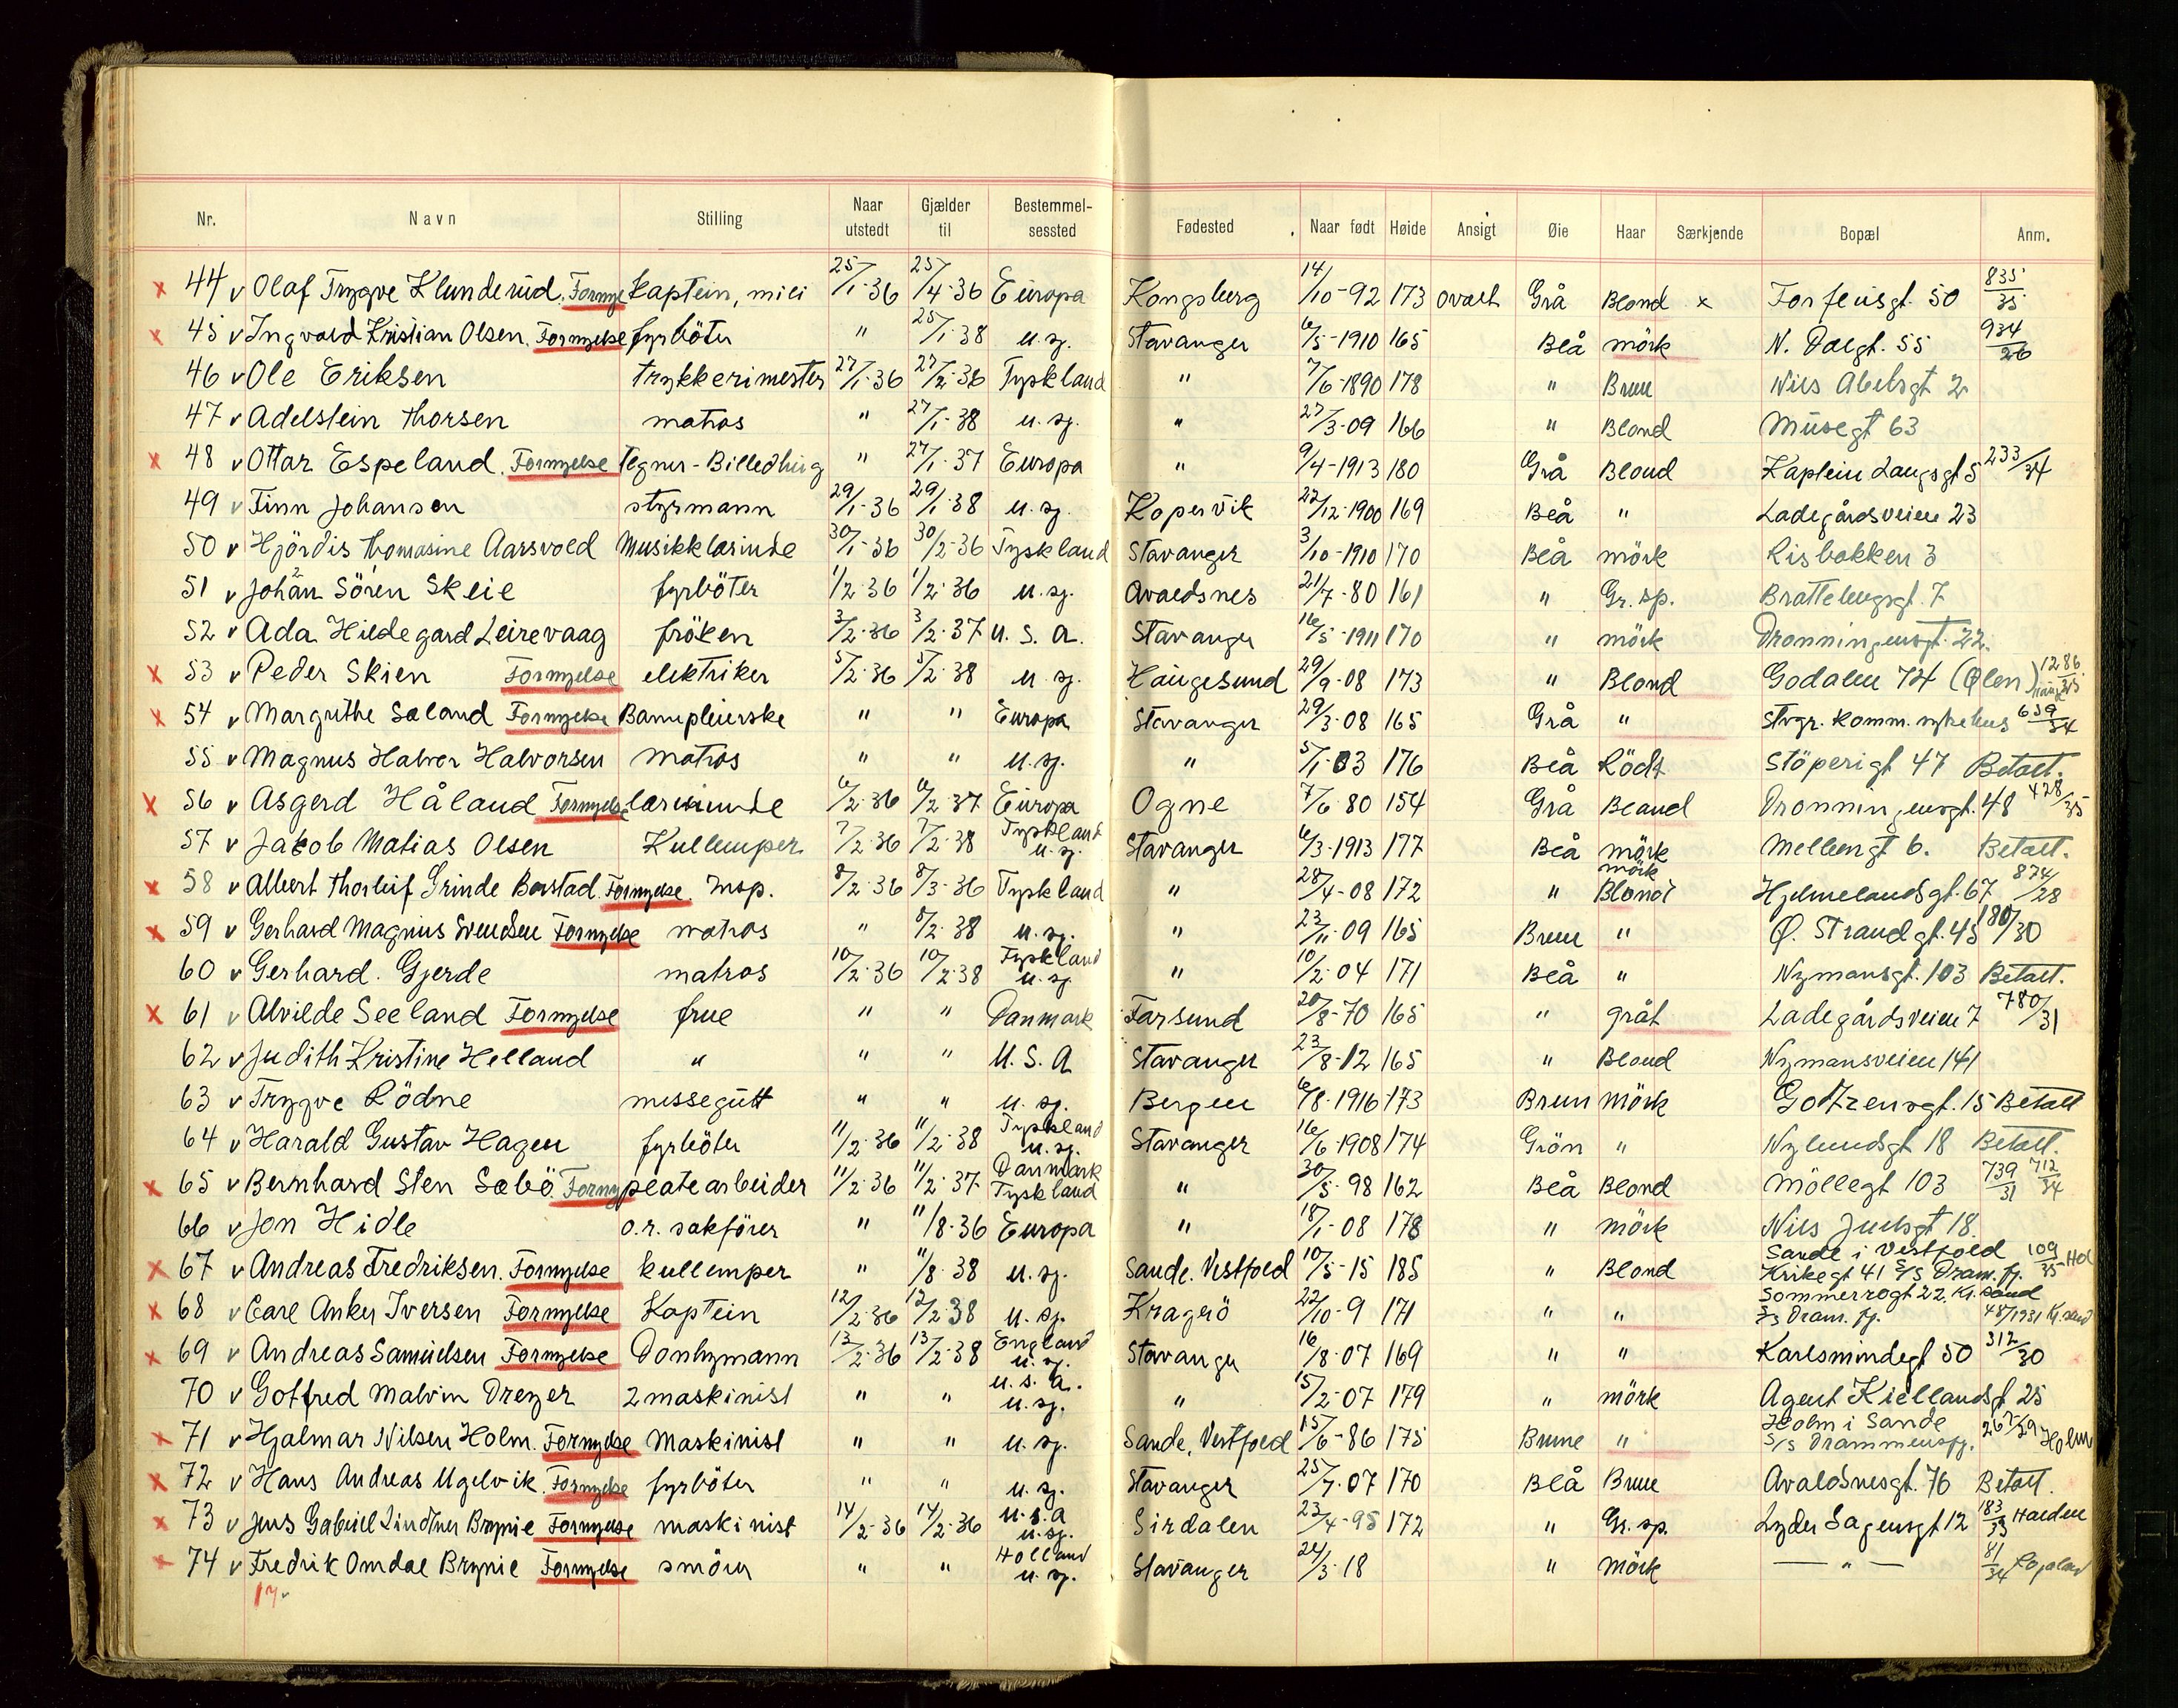 Nr. Navn Stilling Naar utstedt Gjælder til Bestemmelsessted Fødested Naar født Høide Ansigt Øie Haar Særkjende Bopæl Anm.
x 44 v Olaf Trygve Klunderud. Fornye Kaptein, mili 25/1-36 25/4-36 Europa Kongsberg 14/10-92 173 ovalt Grå Blond x Torfeusgt. 50 835/35
x 45 v Ingvald Kristian Olsen. Fornyelse fyrböter " 25/1 38 u. sj. Stavanger 6/5-1910 165 Blå mörk N. Dalgt. 55 934/26
46 v Ole Eriksen trykkerimester 27/1-36 27/2-36 Tyskland " 7/6-1890 178 " Brun Nils Abelsgt 2
47 v Adelstein Thorsen matros " 27/1-38 u. sj. " 27/3-09 166 " Blond Musegt 63
x 48 v Ottar Espeland. Fornyelse Tegner-Billedhug " 27/1-37 Europa " 9/4-1913 180 Grå Blond Kaptein Langsgt 5 233/34
49 v Finn Johansen styrmann 29/1-36 29/1-38 u. sj. Kopervik 22/12-1900 169 Blå " Ladegårdsveien 23
50 v Hjördis Thomasine Aarsvold Musikklærinde 30/1-36 30/2-36 Tyskland Stavanger 3/10-1910 170 Blå mörk Risbakken 3
51 v Johan Sören Skeie fyrböter 1/2-36 1/2-36 u. sj. Avaldsnes 21/7-80 161 " Gr. sp. Brattebugsgt. 7
52 v Ada Hildegard Leirevaag fröken 3/2-36 3/2-37 U. S. A. Stavanger 16/5-1911 170 " mörk Dronningensgt. 22.
x 53 v Peder Skien Fornyelse elektriker 5/2-36 5/2-38 u. sj. Haugesund 29/9-08 173 " Blond Godalen 74 (Ølen) 1286/35
x 54 v Margrethe Sæland Fornyelse Barnepleierske " " Europa Stavanger 29/3-08 165 Grå " Stvgr. Komm. sykehus 659/34
55 v Magnus Halvor Halvorsen Matros " " u. sj. " 5/1-03 176 Blå Rödt Stöperigt 47 Betalt.
x 56 v Asgerd Håland Fornyelse lærerinde 6/2-36 6/2-37 Europa Ogne 7/6-80 154 Grå Bland Dronningensgt. 48 428/35
57 v Jakob Matias Olsen Kullemper 7/2-36 7/2-38 Tyskland u. sj. Stavanger 6/3-1913 177 Blå mörk Mellemgt 6. Betalt.
x 58 v Albert Thorleif Grinde Barstad. Fornyelse. Insp. 8/2-36 8/3-36 Tyskland " 28/4-08 172 " mörk Blond Hjelmelandsgt. 67 874/28
x 59 v Gerhard Magnus Svendsen Fornyelse matros " 8/2-38 u. sj. " 23/11-09 165 Brun " Ø. Strandgt. 45 180/30
60 v Gerhard. Gjerde matros 10/2-36 10/2-38 Tyskland u. sj. " 10/2-04 171 Blå " Nymansgt. 103 Betalt.
x 61 v Alvilde Seeland Fornyelse frue " " Danmark Farsund 20/8-70 165 " gråt Ladegårdsveien 7 780/31
62 v Judith Kristine Helland " " " U. S. A Stavanger 23/8-12 165 " Blond Nymansveien 141
63 v Trygve Rödne messegutt " " u. sj. Bergen 6/8-1916 173 Brun Mörk Gotzensgt. 15 Betalt
64 v Harald Gustav Hagen fyrböter 11/2-36 11/2-38 Tyskland u. sj. Stavanger 16/6-1908 174 Grön " Nylundsgt 18 Betalt.
x 65 v Bernhard Sten Sæbö. Forny platearbeider 11/2-36 11/2-37 Danmark Tyskland " 30/5-98 162 Blå Blond Möllegt 103 739/31 712/34
66 v Jon Hidle o.r. sakförer " 11/8-36 Europa " 18/1-08 178 " mörk Nils Juelsgt 18.
x 67 v Andreas Fredriksen. Fornyelse kullemper " 11/8-38 u. sj. Sande. Vestfold 10/5-15 185 " Blond Sande i Vestfold Krikegt 41 S/S Dram. fj. 109/35 Hol
x 68 v Carl Anker Iversen Fornyelse Kaptein 12/2-36 12/2-38 u. sj. Kragerö 22/10-9 171 " " Sommerrogt 22. Kr. sand S/S Dram. fj. 48/1931 Kr. sand
x 69 v Andreas Samuelsen Fornyelse Donkymann 13/2-36 13/2-38 England u. sj. Stavanger 16/8-07 169 " " Karlsmindegt 50 312/30
70 v Gotfred Malvin Dreyer 2 maskinist " " U. S. A. u. sj. " 15/2-07 179 " mörk Agent Kiellandsgt 25
x 71 v Hjalmar Nilsen Holm. Fornyelse Maskinist " " u. sj. Sande, Vestfold 15/6-86 175 Brune " Holm i Sande S/S Drammensfj. 267/29 Holm
x 72 v Hans Andreas Ugelvik. Fornyelse fyrböter " " u. sj. Stavanger 25/7-07 170 Blå Brun Avaldsnesgt. 76 Betalt.
x 73 v Jens Gabriel Lindtner Brynie Fornyelse maskinist 14/2-36 14/2-36 U. S. A u. sj. Sirdalen 23/4-95 172 " Gr. sp. Lyder Sagensgt 12 183/33 Halden
x 74 v Fredrik Omdal Brynie Fornyelse smörer " " Holland u. sj. Stavanger 24/3-18 " Mörk — " — 81/34 Rogaland
17 v